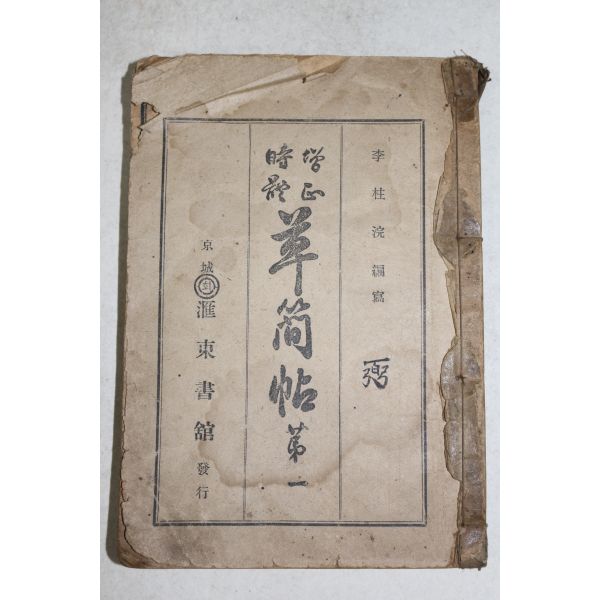 李柱浣編寫
增正
時體
草簡帖 第一
京城 滙東書舘 發行